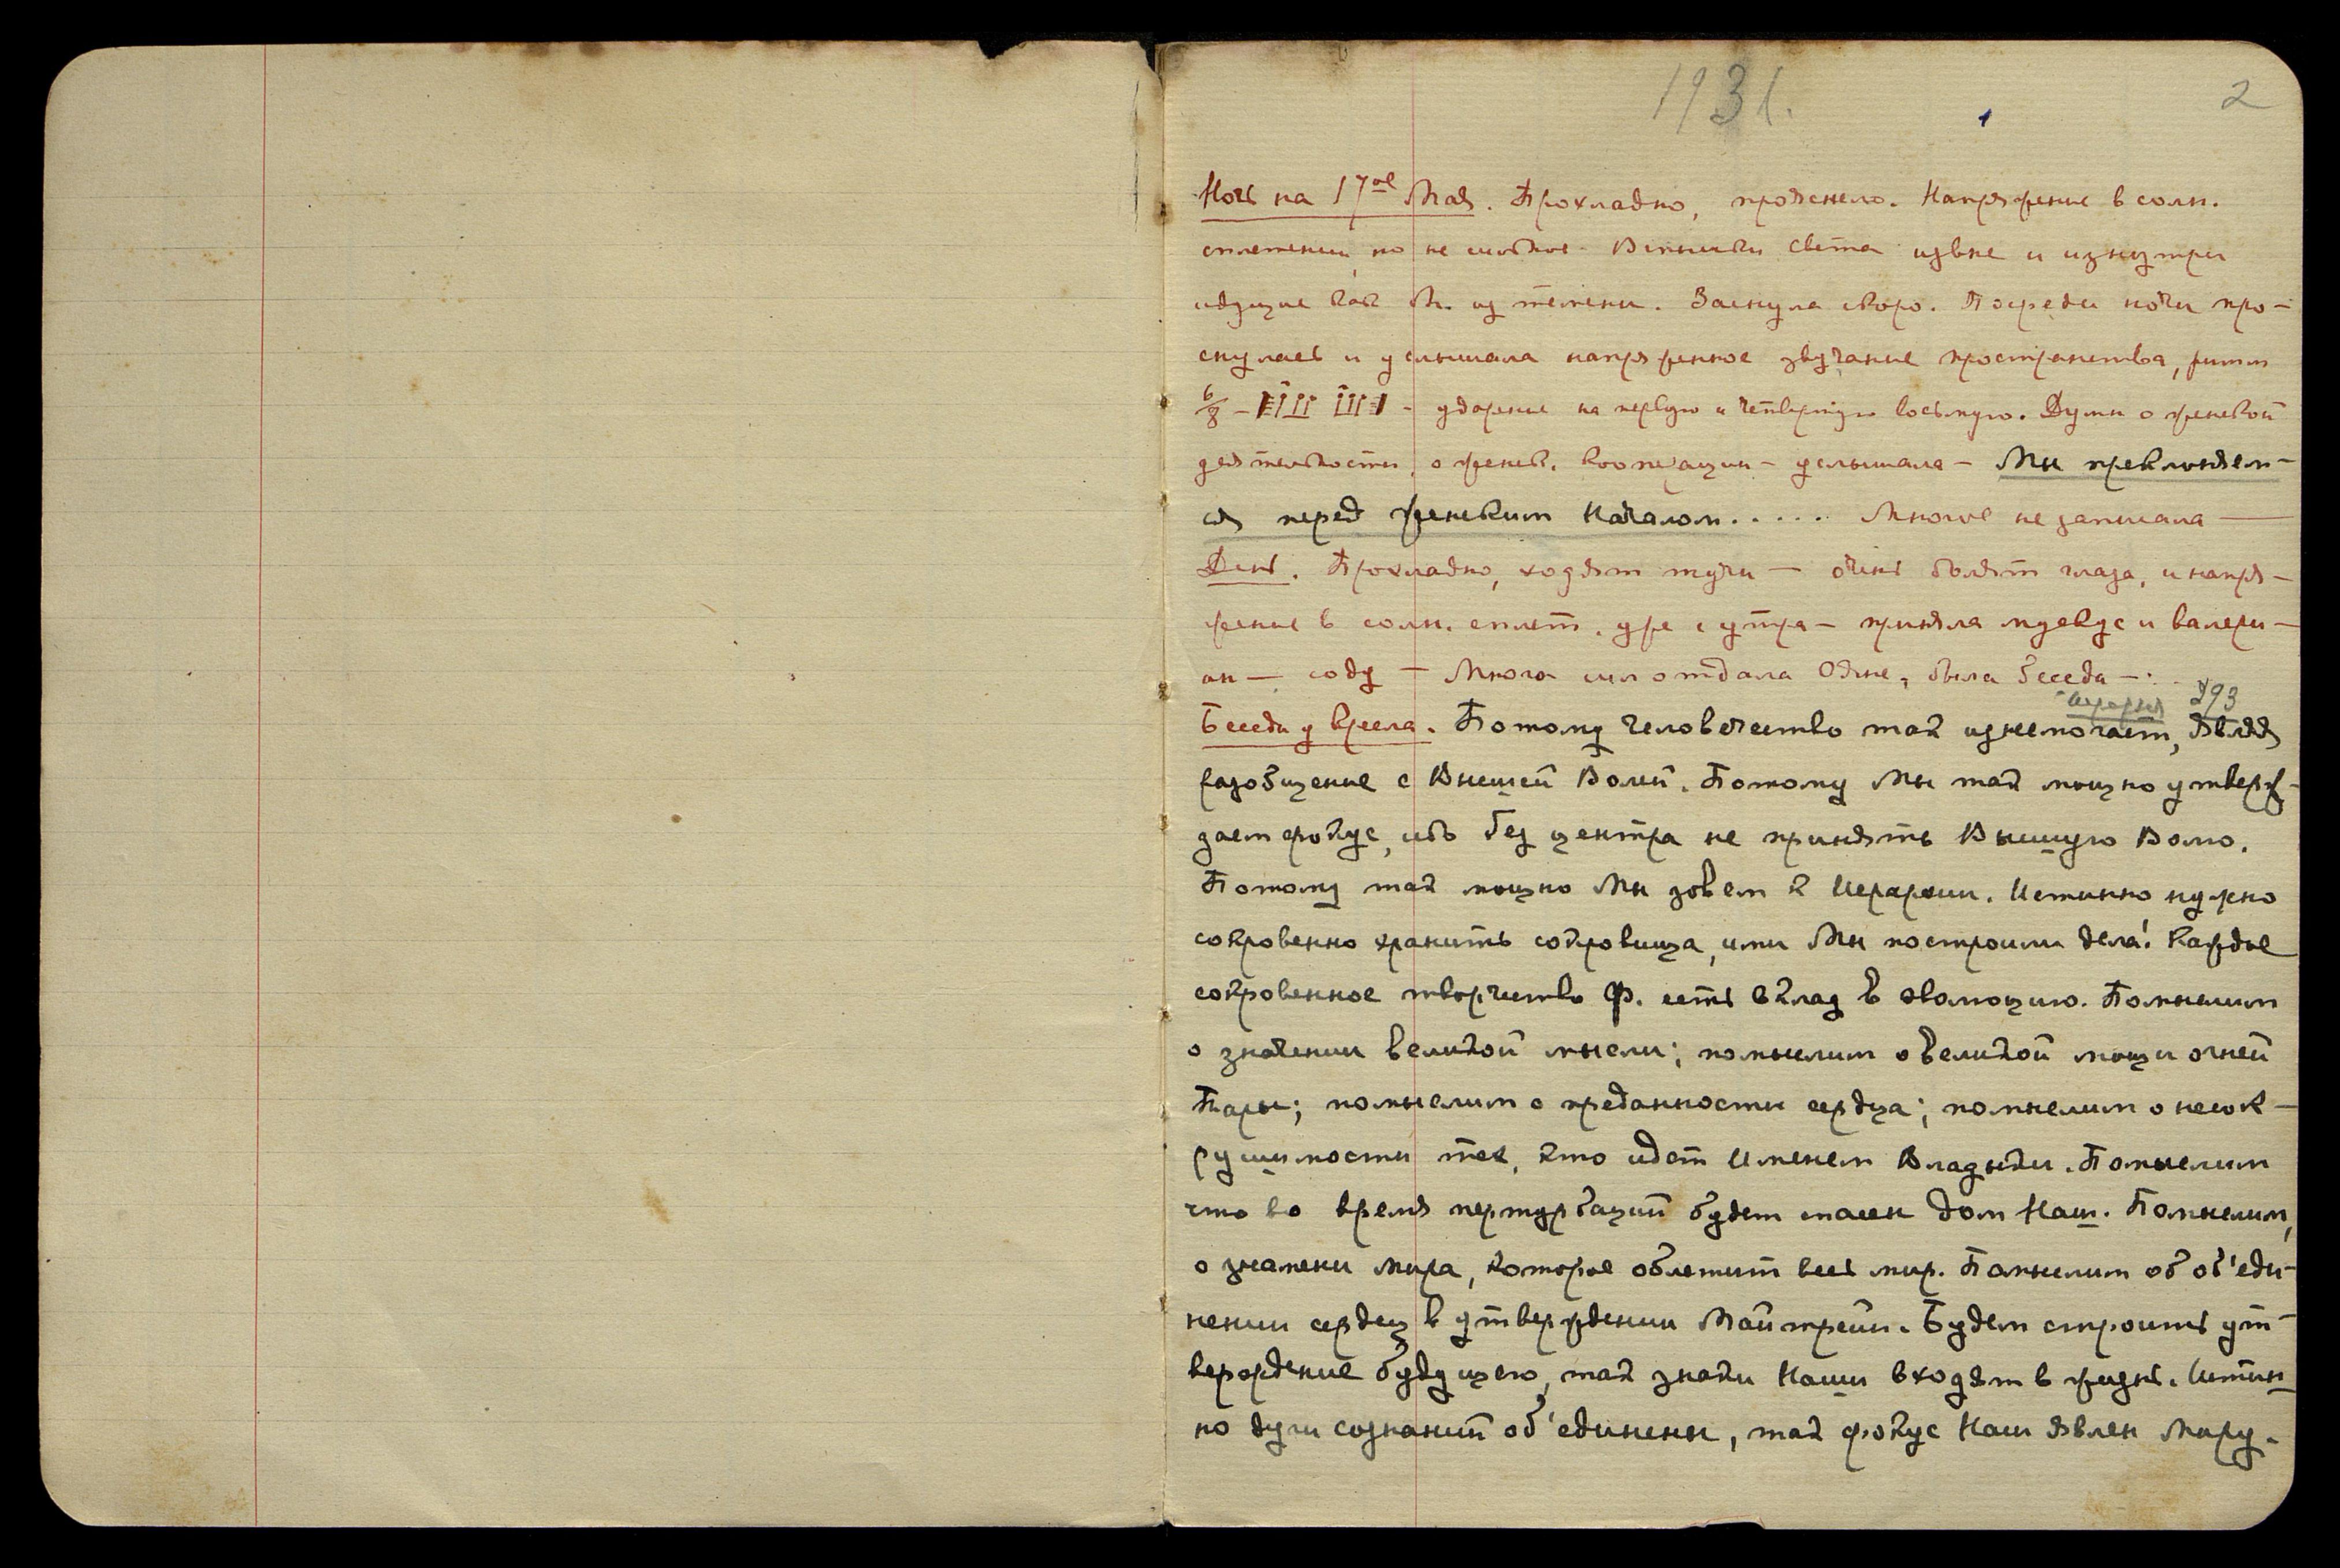 1931.
2
1
Ночь на 17ое Мая. Прохладно, прояснело. Напряжение в солн.
сплетении, но не сильное. Вспышки света извне и изнутри
идущие как бы из темени. Заснула скоро. Посреди ночи про-
снулась и услышала напряженное звучание пространства, ритм
6/8 – – ударение на первую и четвертую восьмую. Думы о женской
деятельности, о женск. кооперации – услышала – Мы преклоняем-
ся перед женским Началом..... Многое не записала —
День. Прохладно, ходят тучи — очень болят глаза, и напря-
жение в солн. сплет. уже с утра – приняла мускус и валери-
ан — соду — Много сил отдала Одне, была беседа —
Иерархия 293
Беседа у кресла. Потому человечество так изнемогает, являя
разобщение с Высшей Волей. Потому Мы так мощно утверж-
даем фокус, ибо без центра не принять Высшую Волю.
Потому так мощно Мы зовем к Иерархии. Истинно нужно
сокровенно хранить сокровища, ими Мы построили дела! Каждое
сокровенное творчество Ф. есть вклад в эволюцию. Помыслим
о значении великой мысли; помыслим о великой мощи огней
Тары; помыслим о преданности сердца; помыслим о несок-
рушимости тех, кто идет Именем Владыки. Помыслим
что во время пертурбаций будет спасен дом Наш. Помыслим,
о знамени Мира, которое облетит весь мир. Помыслим об об'еди-
нении сердец в утверждении Майтрейи. Будем строить ут-
верждение будущего, так знаки Наши входят в жизнь. Истин-
но дуги сознаний об'единены, так фокус Наш явлен Миру.